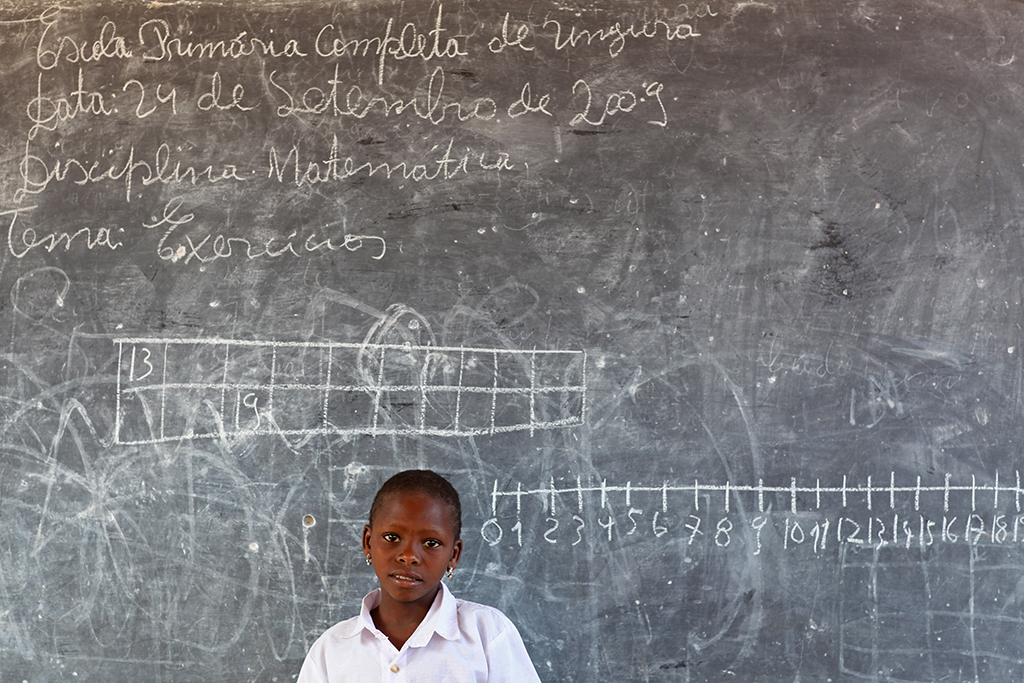 Escola Primária Completa de Ungura
Data: 24 de Setembro de 2009.
Disciplina. Matemática.
Tema: Exercícios
13
9
0 1 2 3 4 5 6 7 8 9 10 11 12 13 14 15 16 17 18 19